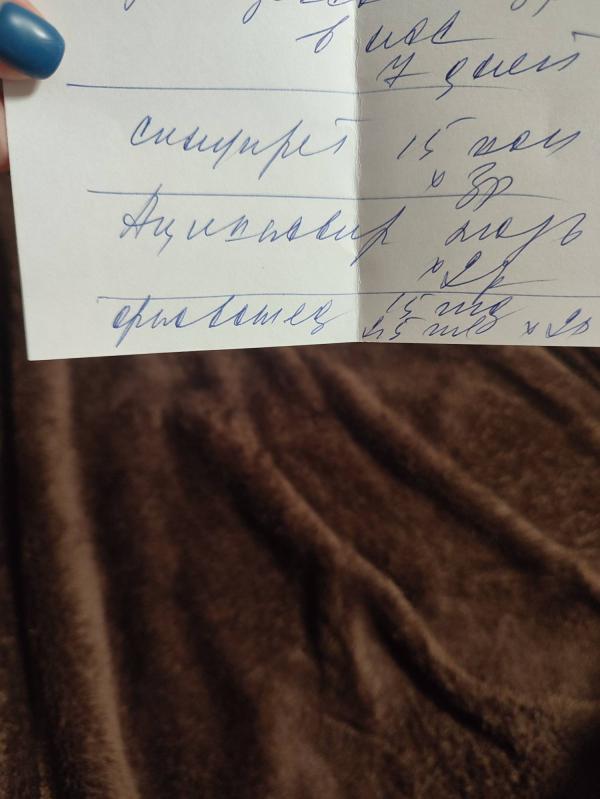 в нос
7 дней
синупрет 15 кап
х 3р
Ацикловир мазь
х 2р
15 mg
х 2р